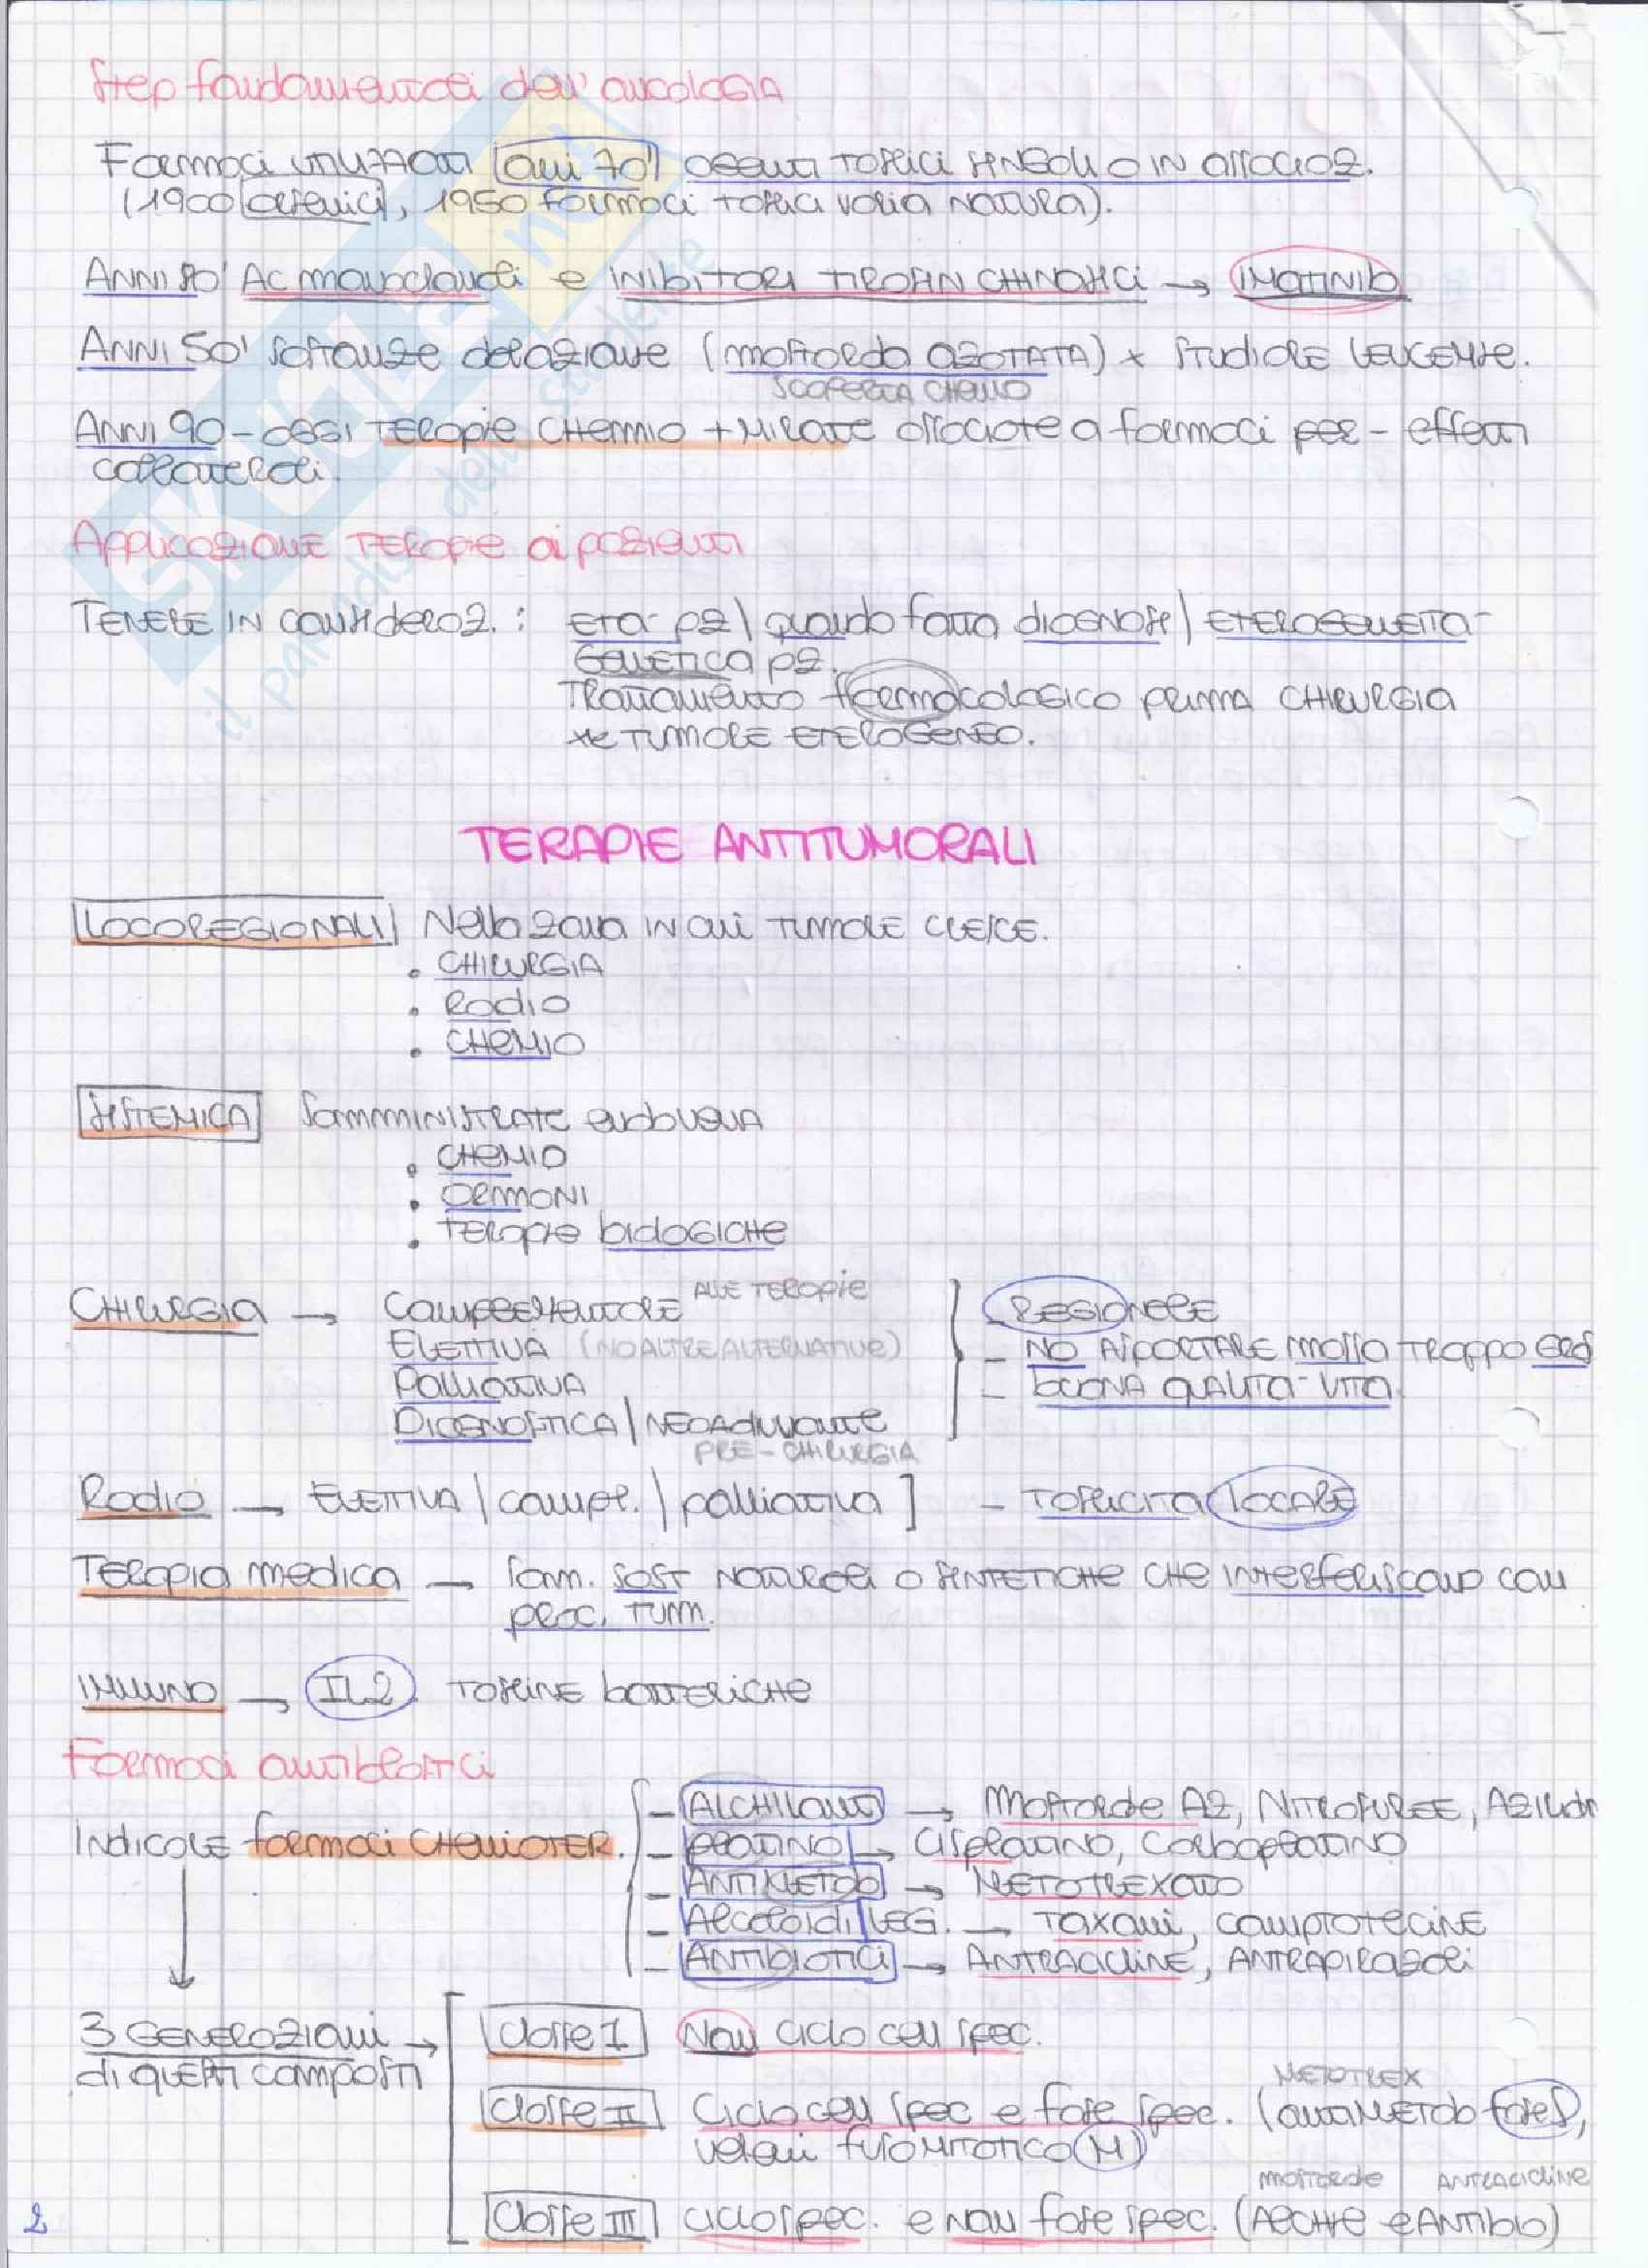 Step fondamentali dell'oncologia
Farmaci utilizzati anni 70' agenti tossici singoli o in associaz.
(1900 arsenici, 1950 farmaci tossici varia natura).
ANNI 80' AC monoclonali e INIBITORI TIROSIN CHINASICI → IMATINIB
ANNI 50' sostanze derazione (mostarda azotata) x studiare leucemie.
scoperta chemio
ANNI 90 - oggi terapie chemio + mirate associate a farmaci per - effetti
collaterali.
Applicazione terapie ai pazienti
Tenere in consideraz. : età pz | quando fatta diagnosi | eterogeneità
genetica pz.
Trattamento farmacologico prima chirurgia
xe tumore eterogeneo.
TERAPIE ANTITUMORALI
LOCOREGIONALI Nella zona in cui tumore cresce.
. CHIRURGIA
. Radio
. CHEMIO
SISTEMICA Somministrate endovena
. CHEMIO
. ORMONI
. Terapie biologiche
CHIRURGIA → Complementare alle terapie
Elettiva (no altre alternative)
Palliativa
Diagnostica / Neoadiuvante
PRE-CHIRURGIA
- REGIONALE
- NO asportare massa troppo grd
- buona qualità vita
Radio → Elettiva | compl. | palliativa ] - Tossicità locale
Terapia medica → Somm. sost naturali o sintetiche che interferiscano con
proc. tum.
IMMUNO → IL2. Tossine batteriche
Farmaci antiblastici
Indicare farmaci chemioter.
- Alchilanti → Mostarde AZ, Nitrosuree, Aziridin
- Platino → Cisplatino, Carboplatino
- Antimetab → Metotrexato
- Alcaloidi VEG. → Taxani, camptotecine
- Antibiotici → Antracicline, Antrapirazoli
3 generazioni → di questi composti
Classe I Non ciclo cell spec.
METOTREX
Classe II Ciclo cell spec e fase spec. (antimetab fase S,
veleni fuso mitotico M)
mostarde antracicline
Classe III ciclo spec. e non fase spec. (Alchi e Antibio)
2
SKUOLA.net
il paradiso dello studente